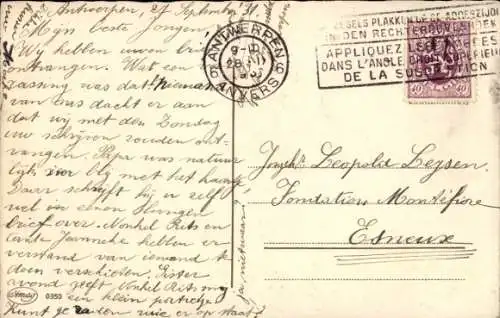 Antwerpen, 27 September 31.
Mijn beste Jongen,
Wij hebben uwen brief
ontvangen. Wat een
rassing was dat! Niemand
van ons dacht er aan
dat wij met den Zondag
uw schrijven zouden ont-
vangen. Papa was natuur
lijk zeer blij met het
Daar schrijft hij er zelf
wel in eenen
brief over. Nonkel Frits en
tante Jeanneke hebben er
verstand van iemand te
doen verschieten.
avond geeft Nonkel Frits nog
een klein partijtje
Kunt ge raden wie er op staat?
ja nietwaar?
ANTWERPEN 6
9-10
ANVERS 6
ZEGELS PLAKKEN OP DE ADRESZIJDE
IN DEN RECHTERBOVENHOEK
APPLIQUEZ LES TIMBRES
DANS L'ANGLE DROIT SUPÉRIEUR
DE LA SUSCRIPTION
40 40
Joseph Leopold Leysen.
Fondation Montéfiore
Esneux
0353